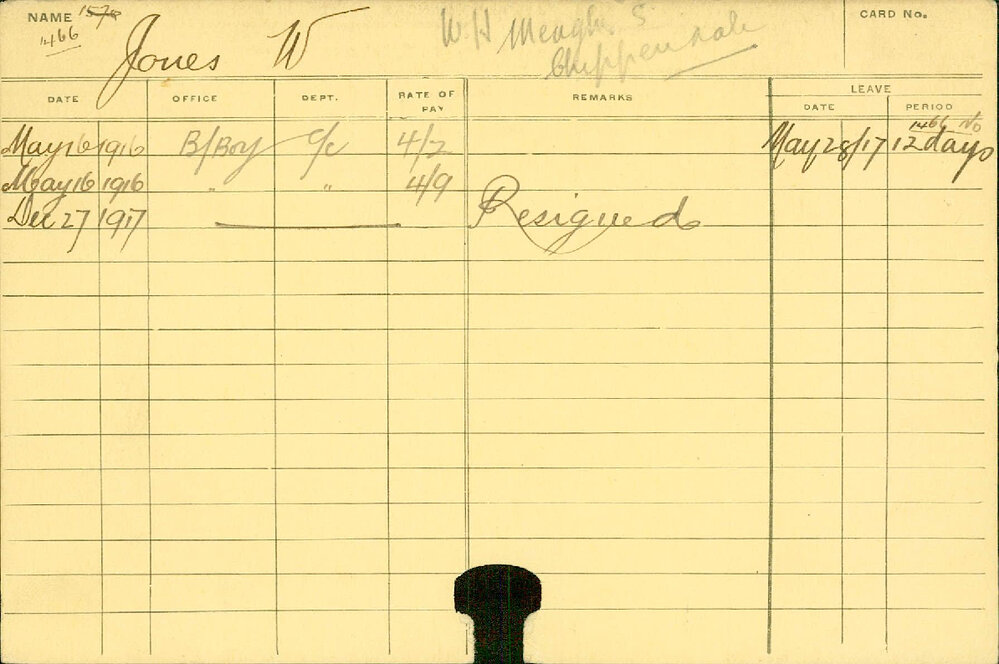 NAME 1578
466
Jones W
W.H Meagher S
Chippendale
CARD No.
DATE OFFICE DEPT. RATE OF PAY REMARKS LEAVE
DATE PERIOD
1466 No
May 16 1916 B/Boy C/c 4/2 May 28/17 12 days
May 16 1916 " " 4/9
Dec 27 1917 Resigned